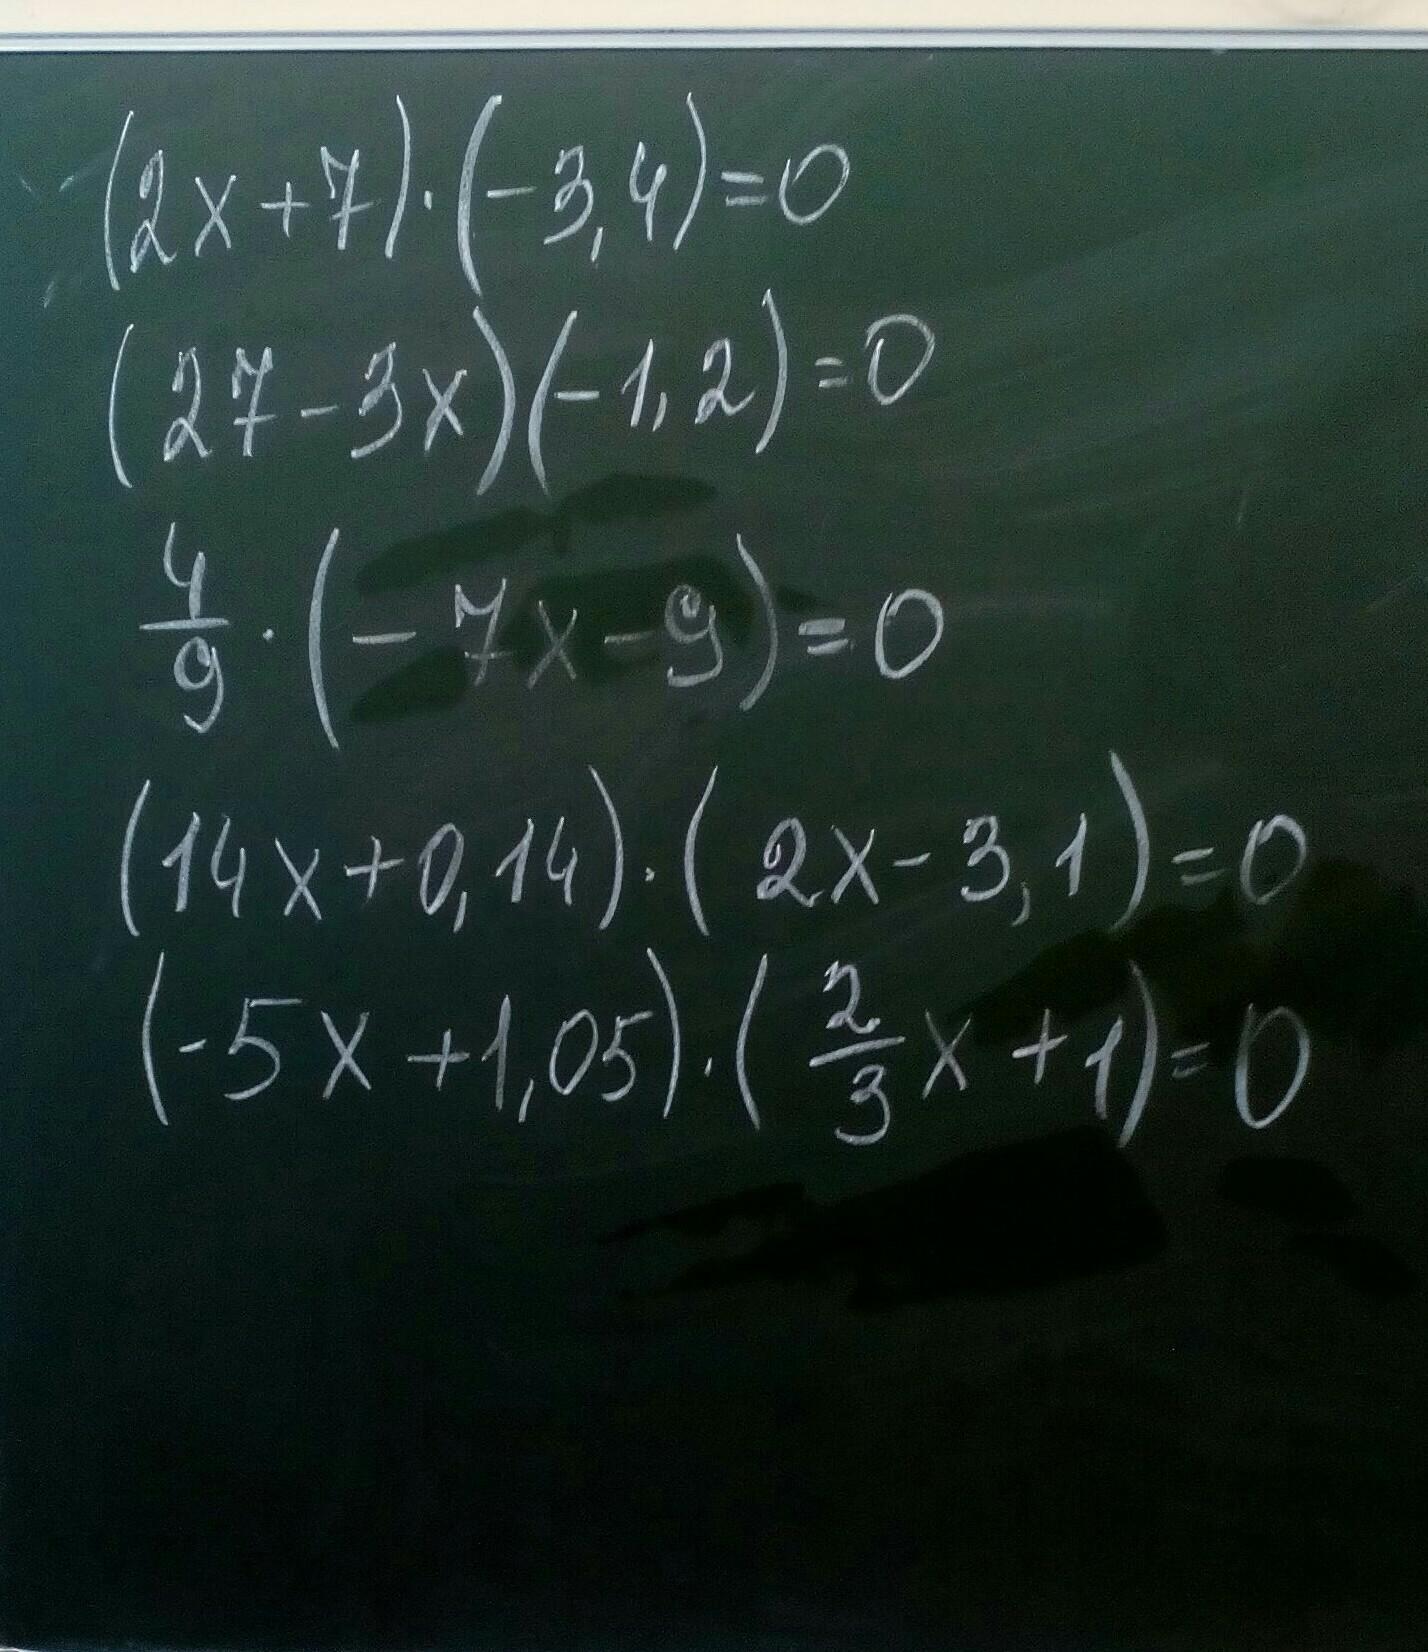 (2x+7)·(-3,4)=0
(27-3x)(-1,2)=0
4/9·(-7x-9)=0
(14x+0,14)·(2x-3,1)=0
(-5x+1,05)·(2/3x+1)=0